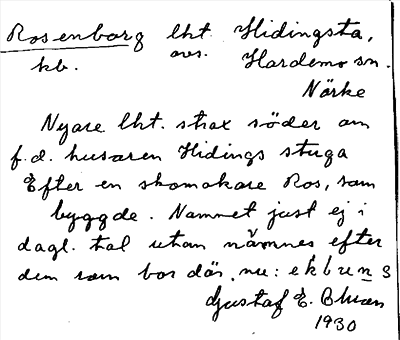 Rosenborg lht. Hidingsta,
kb. avs. Hardemo sn.
Närke
Nyare lht. strax söder om
f.d. husaren Hidings stuga
Efter en skomakare Ros, som
byggde. Namnet just ej i
dagl. tal utan nämnes efter
dem som bor där, nu: ekbuns
Gustaf E. Bluan
1930